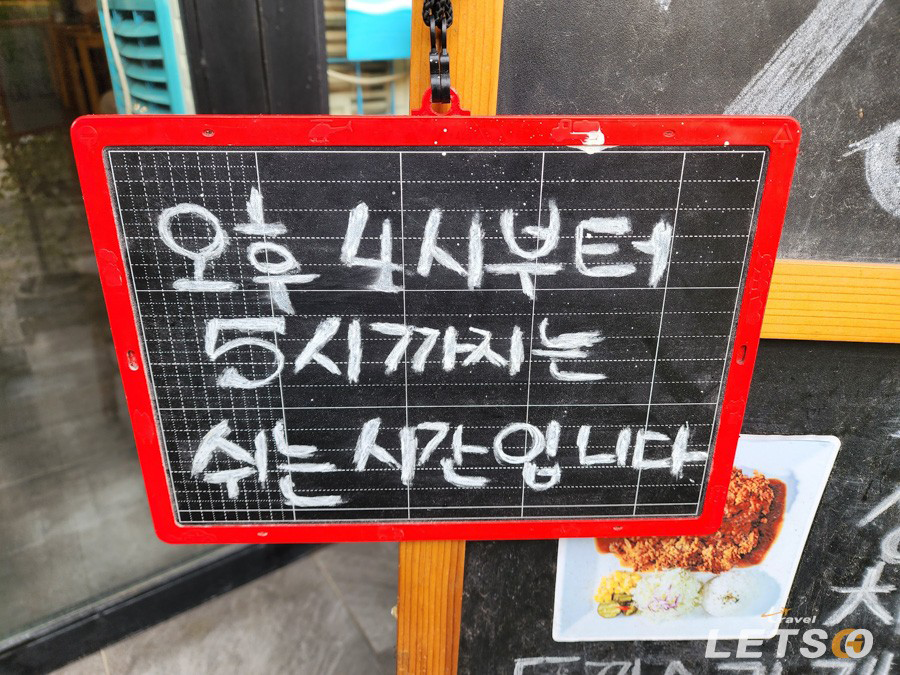 오후 4시부터
5시까지는
쉬는 시간입니다
Travel
LETSGO